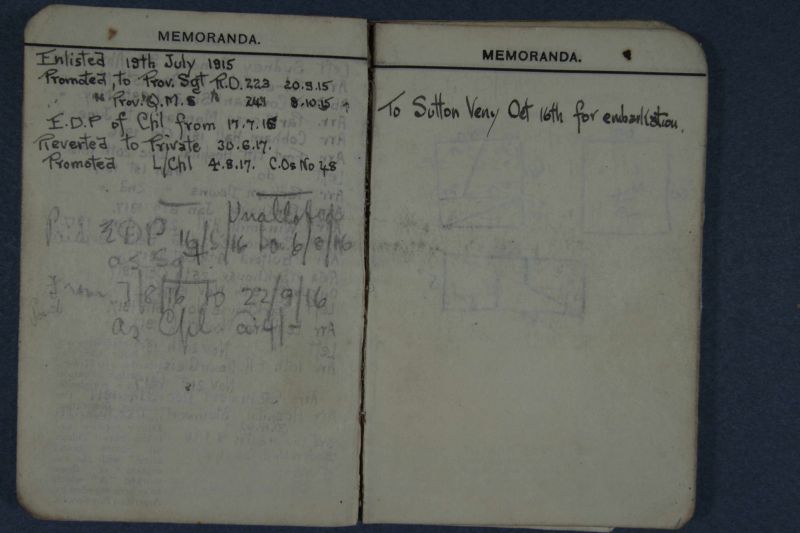 MEMORANDA.
Enlisted 19th July 1915
Promoted to Prov. Sgt R.O. 223 20.9.15
" " Prov. Q.M.S " 241 8.10.15
E.D.P of Cpl from 17.7.16
Reverted to Private 30.6.17.
Promoted L/Cpl 4.8.17. C.Os No 48
EDP 16/5/16 to 6/8/16
as Sgt
From 7/8/16 To 22/9/16
as Cpl at
MEMORANDA.
To Sutton Veny Oct 16th for embarkation.